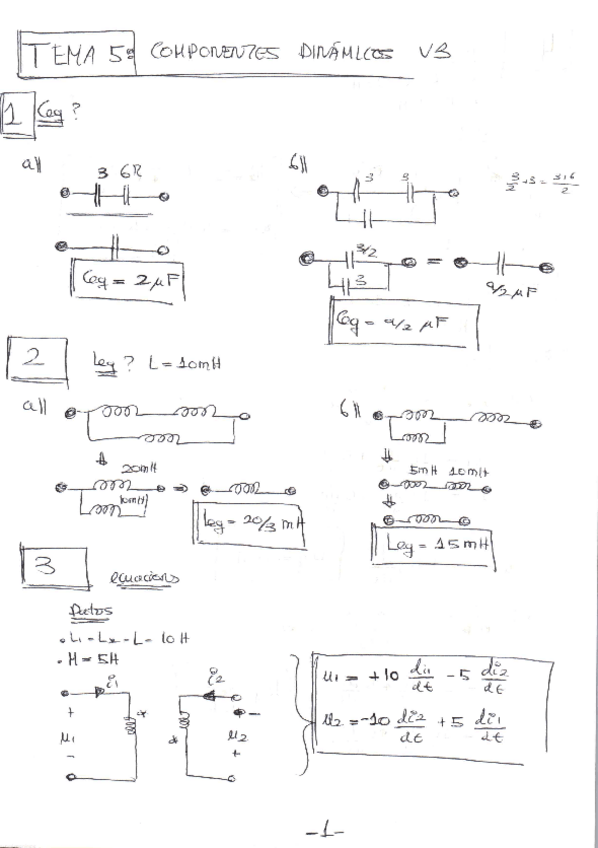 TEMA 5: COMPONENTES DINÁMICOS V3
1 Ceq?
a)) 3 6
b)) 3 3
3/2 + 3 = 3+6/2
3/2
3
=
9/2 μF
Ceq = 2μF
Ceq = 9/2 μF
2 Leq? L = 10mH
a)) b))
20mH
10mH
⇒
Leq = 20/3 mH
5mH 10mH
Leq = 15mH
3 ecuacions
Datos
· L1 = L2 = L = 10H
· M = 5H
i1 i2
+ * -
u1 u2
- * +
u1 = +10 di1/dt - 5 di2/dt
u2 = -10 di2/dt + 5 di1/dt
-1-